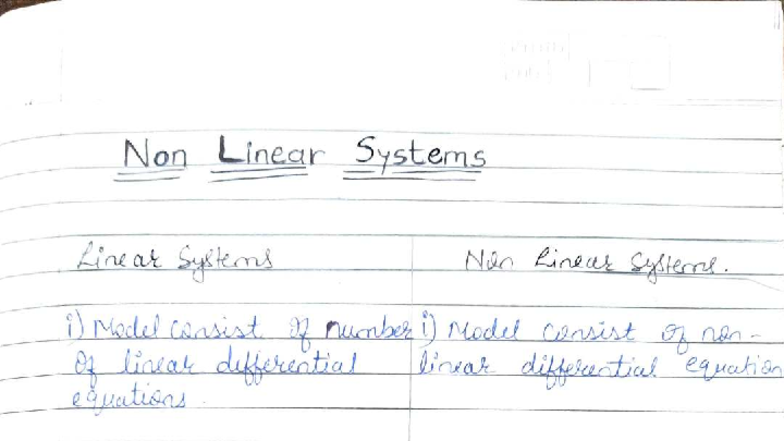 Non Linear Systems
Linear Systems
Non Linear Systems.
i) Model consist of number
of linear differential
equations.
i) Model consist of non-
linear differential equation